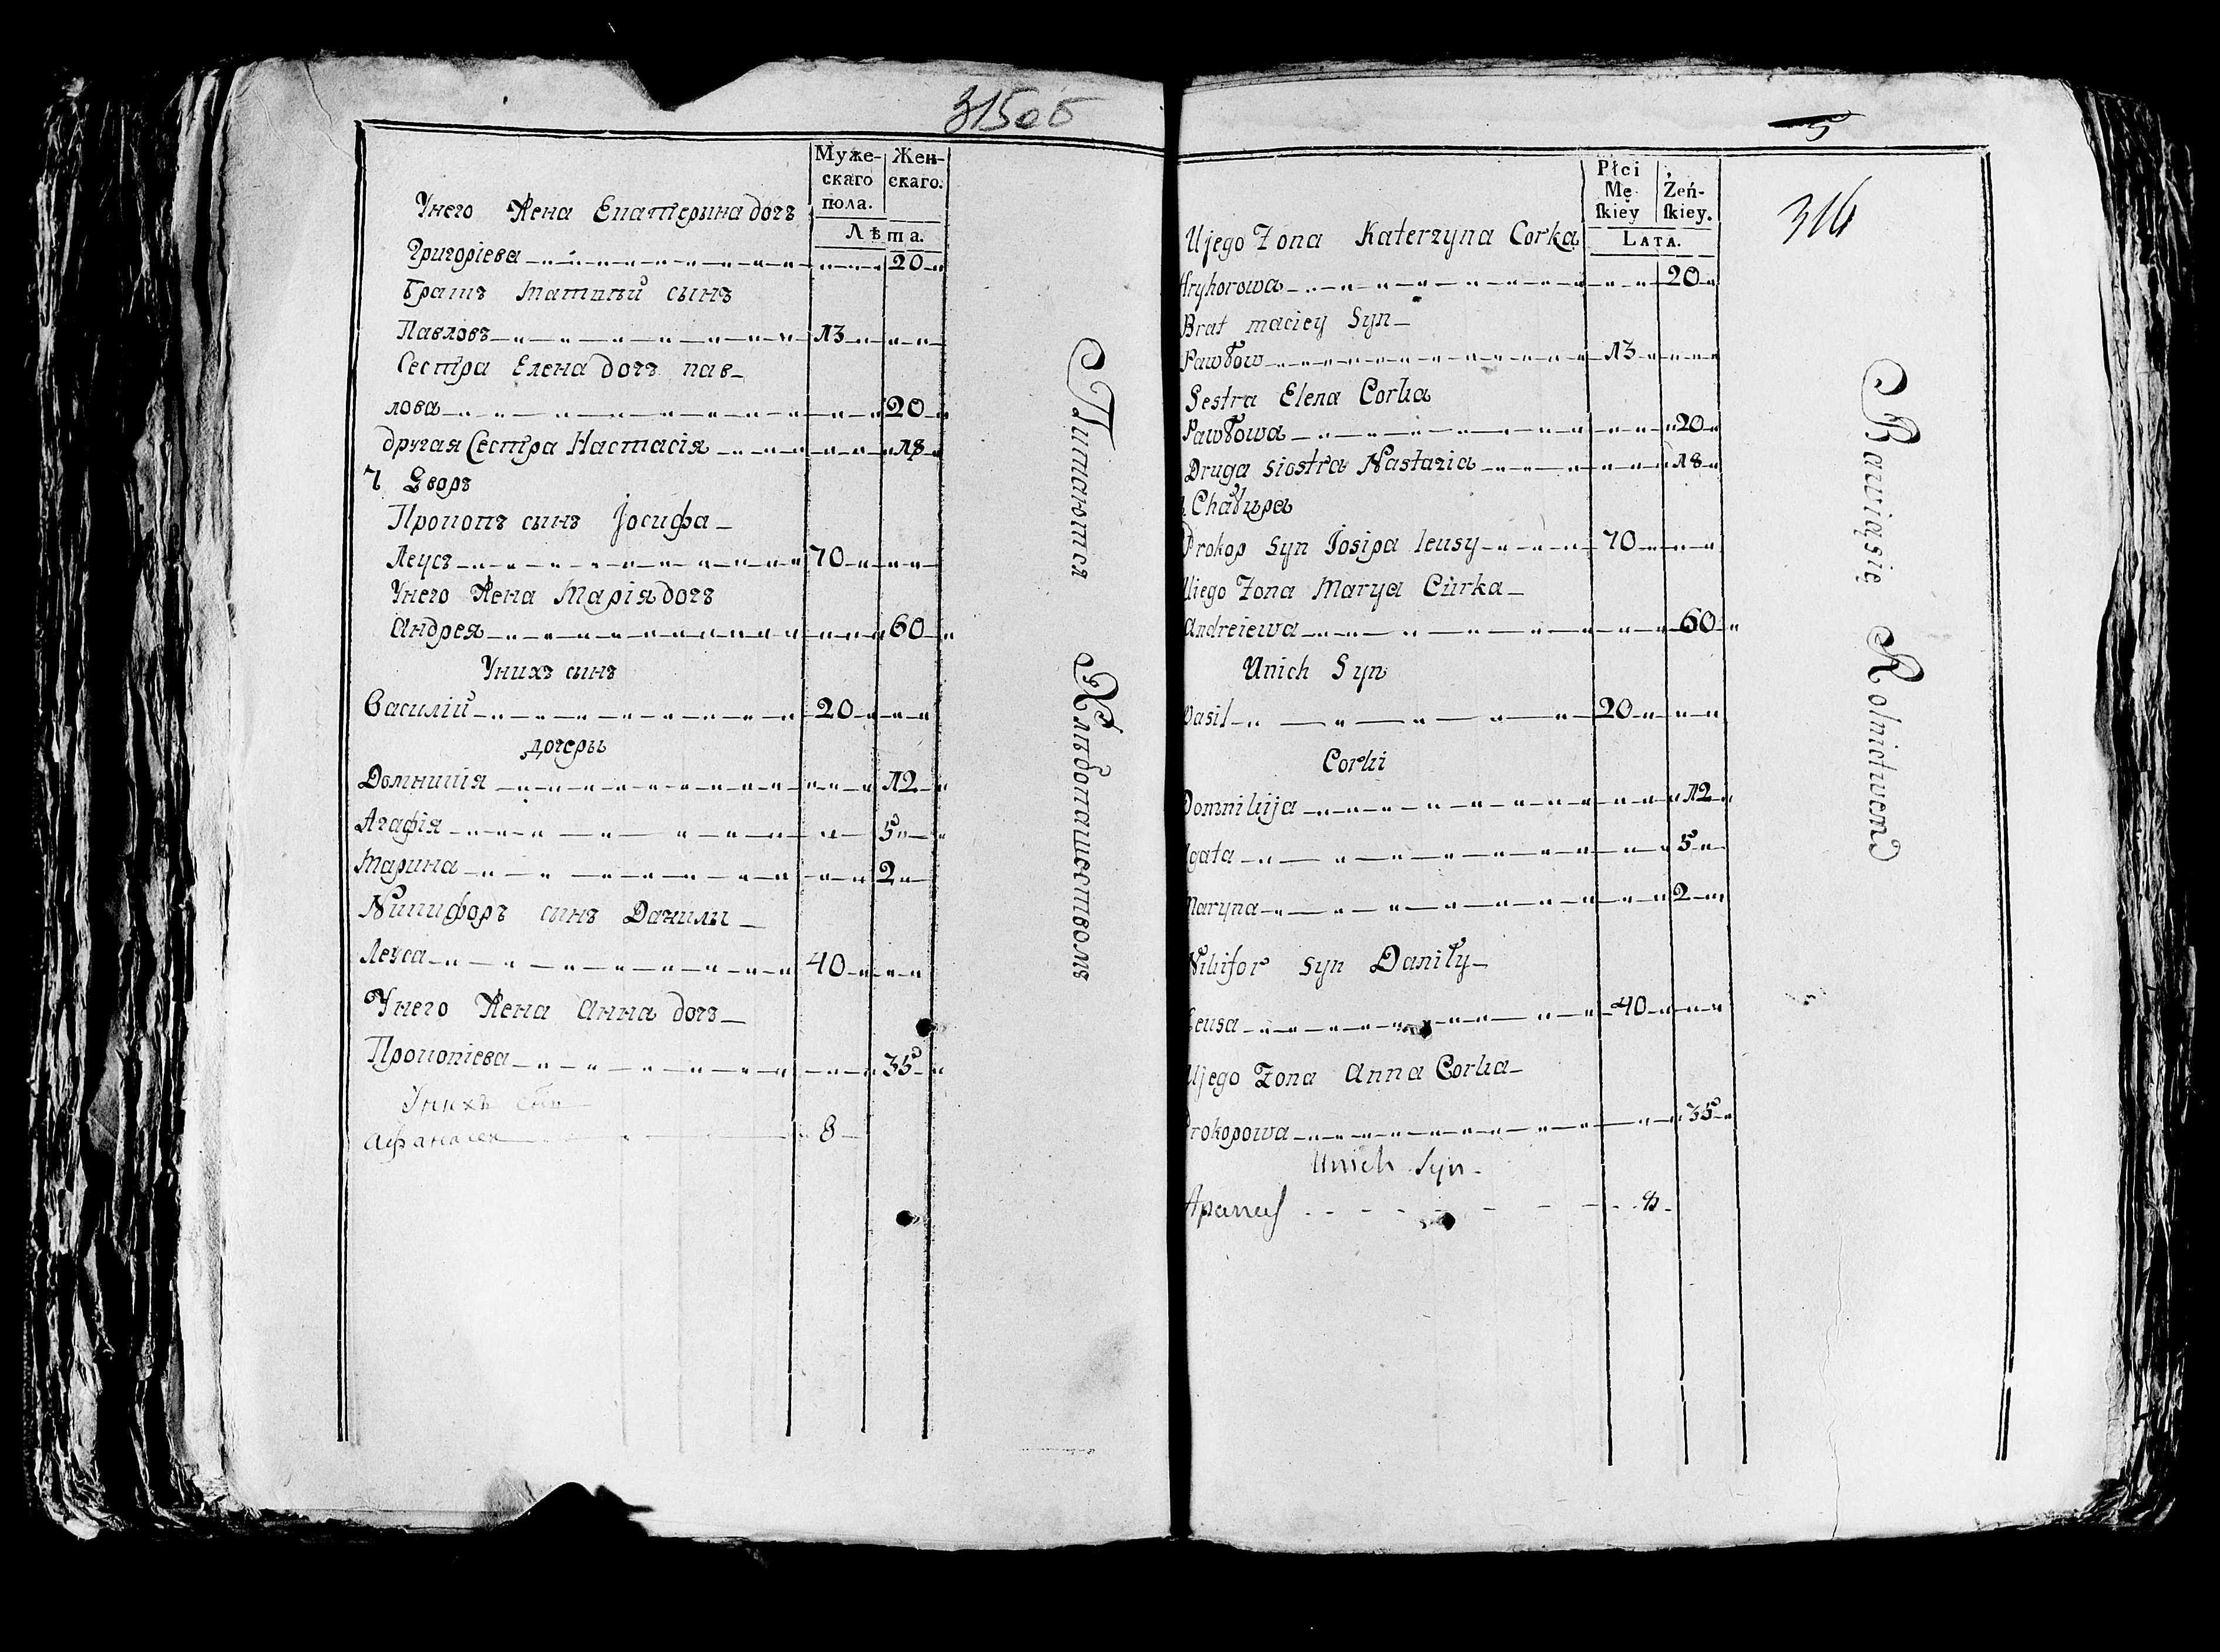 315об
Муже-
скаго
пола.
Жен-
скаго.
Лѣта.
Унего Жена Екатерина дочъ
Григоріева 20
Братъ Матвѣй сынъ
Павловъ 13
Сестра Елена дочъ пав-
лова 20
другая Сестра Настасія 18
7 Дворъ
Прокопъ сынъ Іосифа
Леусъ 70
Унего Жена Марія дочъ
Андрея 60
Унихъ сынъ
Василій 20
дочеры
Домникія 12
Агафія 5
Марина 2
Никифоръ синъ Данилы
Леуса 40
Унего Жена Анна дочъ
Прокопіева 35
Унихъ
Афанасей 8
Питаются Хлѣбопашествомъ
5
316
Płci
Mę
ſkiey
Żeń-
ſkiey.
LATA.
Ujego Zona Katerzyna Corka
Hryhorowa 20
Brat maciey Syn
Pawłow 13
Sestra Elena Corka
Pawłowa 20
Druga siostra Nastazia 18
Chałupa
Prokop Syn Josipa leusy 70
Ujego Zona Marya Curka
Andreiewa 60
Unich Syn
Wasil 20
Corki
Domnikija 12
Agata 5
Maryna 2
Nikifor Syn Daniły
Leusa 40
Ujego Zona Anna Corka
Prokopowa 35
Unich Syn
Apanas 8
Bawiąsię Rolnictwem